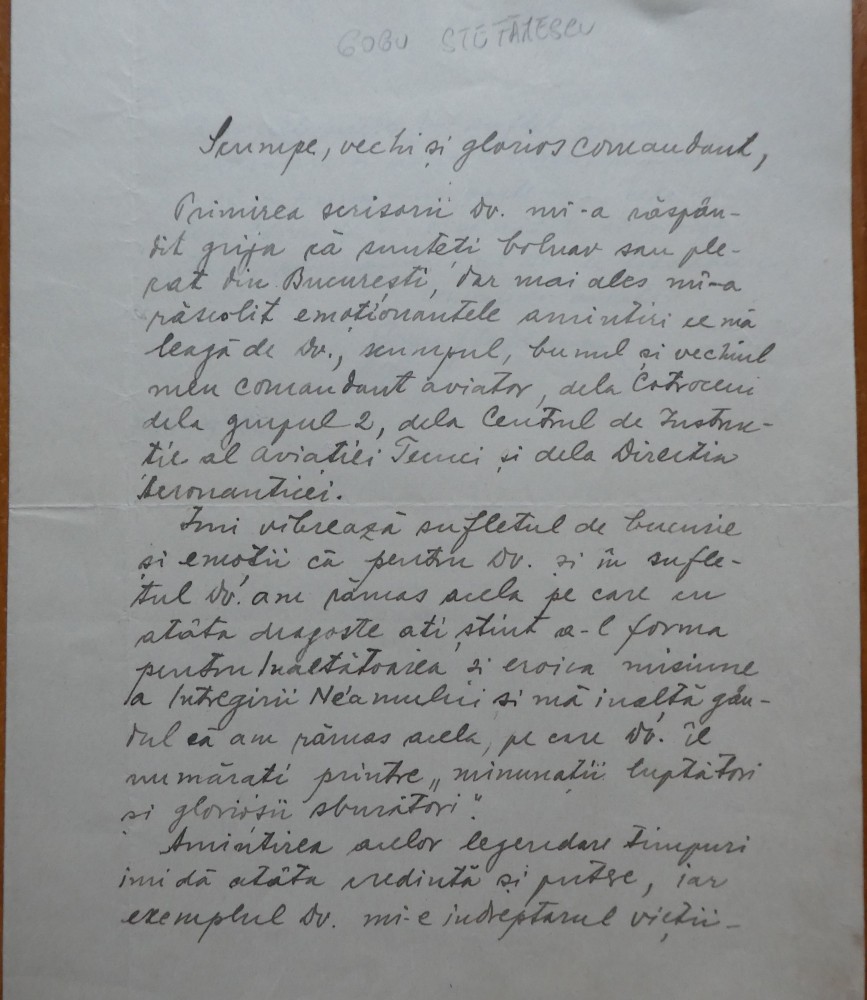 GOGU STEFĂNESCU
Scumpe, vechi și glorios comandant,
Primirea scrisorii Dv. mi-a răspân-
dit grija că sunteți bolnav sau ple-
cat din București, dar mai ales mi-a
răscolit emoționantele amintiri ce mă
leagă de Dv., scumpul, bunul și vechiul
meu comandant aviator, dela Cotroceni
dela grupul 2, dela Centrul de Instruc-
ție al Aviatiei Tecuci și dela Directia
Aeronauticei.
Imi vibrează sufletul de bucurie
și emotii că pentru Dv. și în sufle-
tul Dv. am rămas acela pe care cu
atâta dragoste ati știut a-l forma
pentru Inaltătoarea și eroica misiune
a Intregirii Neamului și mă inaltă gân-
dul că am rămas acela, pe care Dv. îl
numărati printre „minunatii luptători
si gloriosii sburători".
Amintirea acelor legendare timpuri
imi dă atâta credintă și putere, iar
exemplul Dv. mi-e indreptarul vieții-